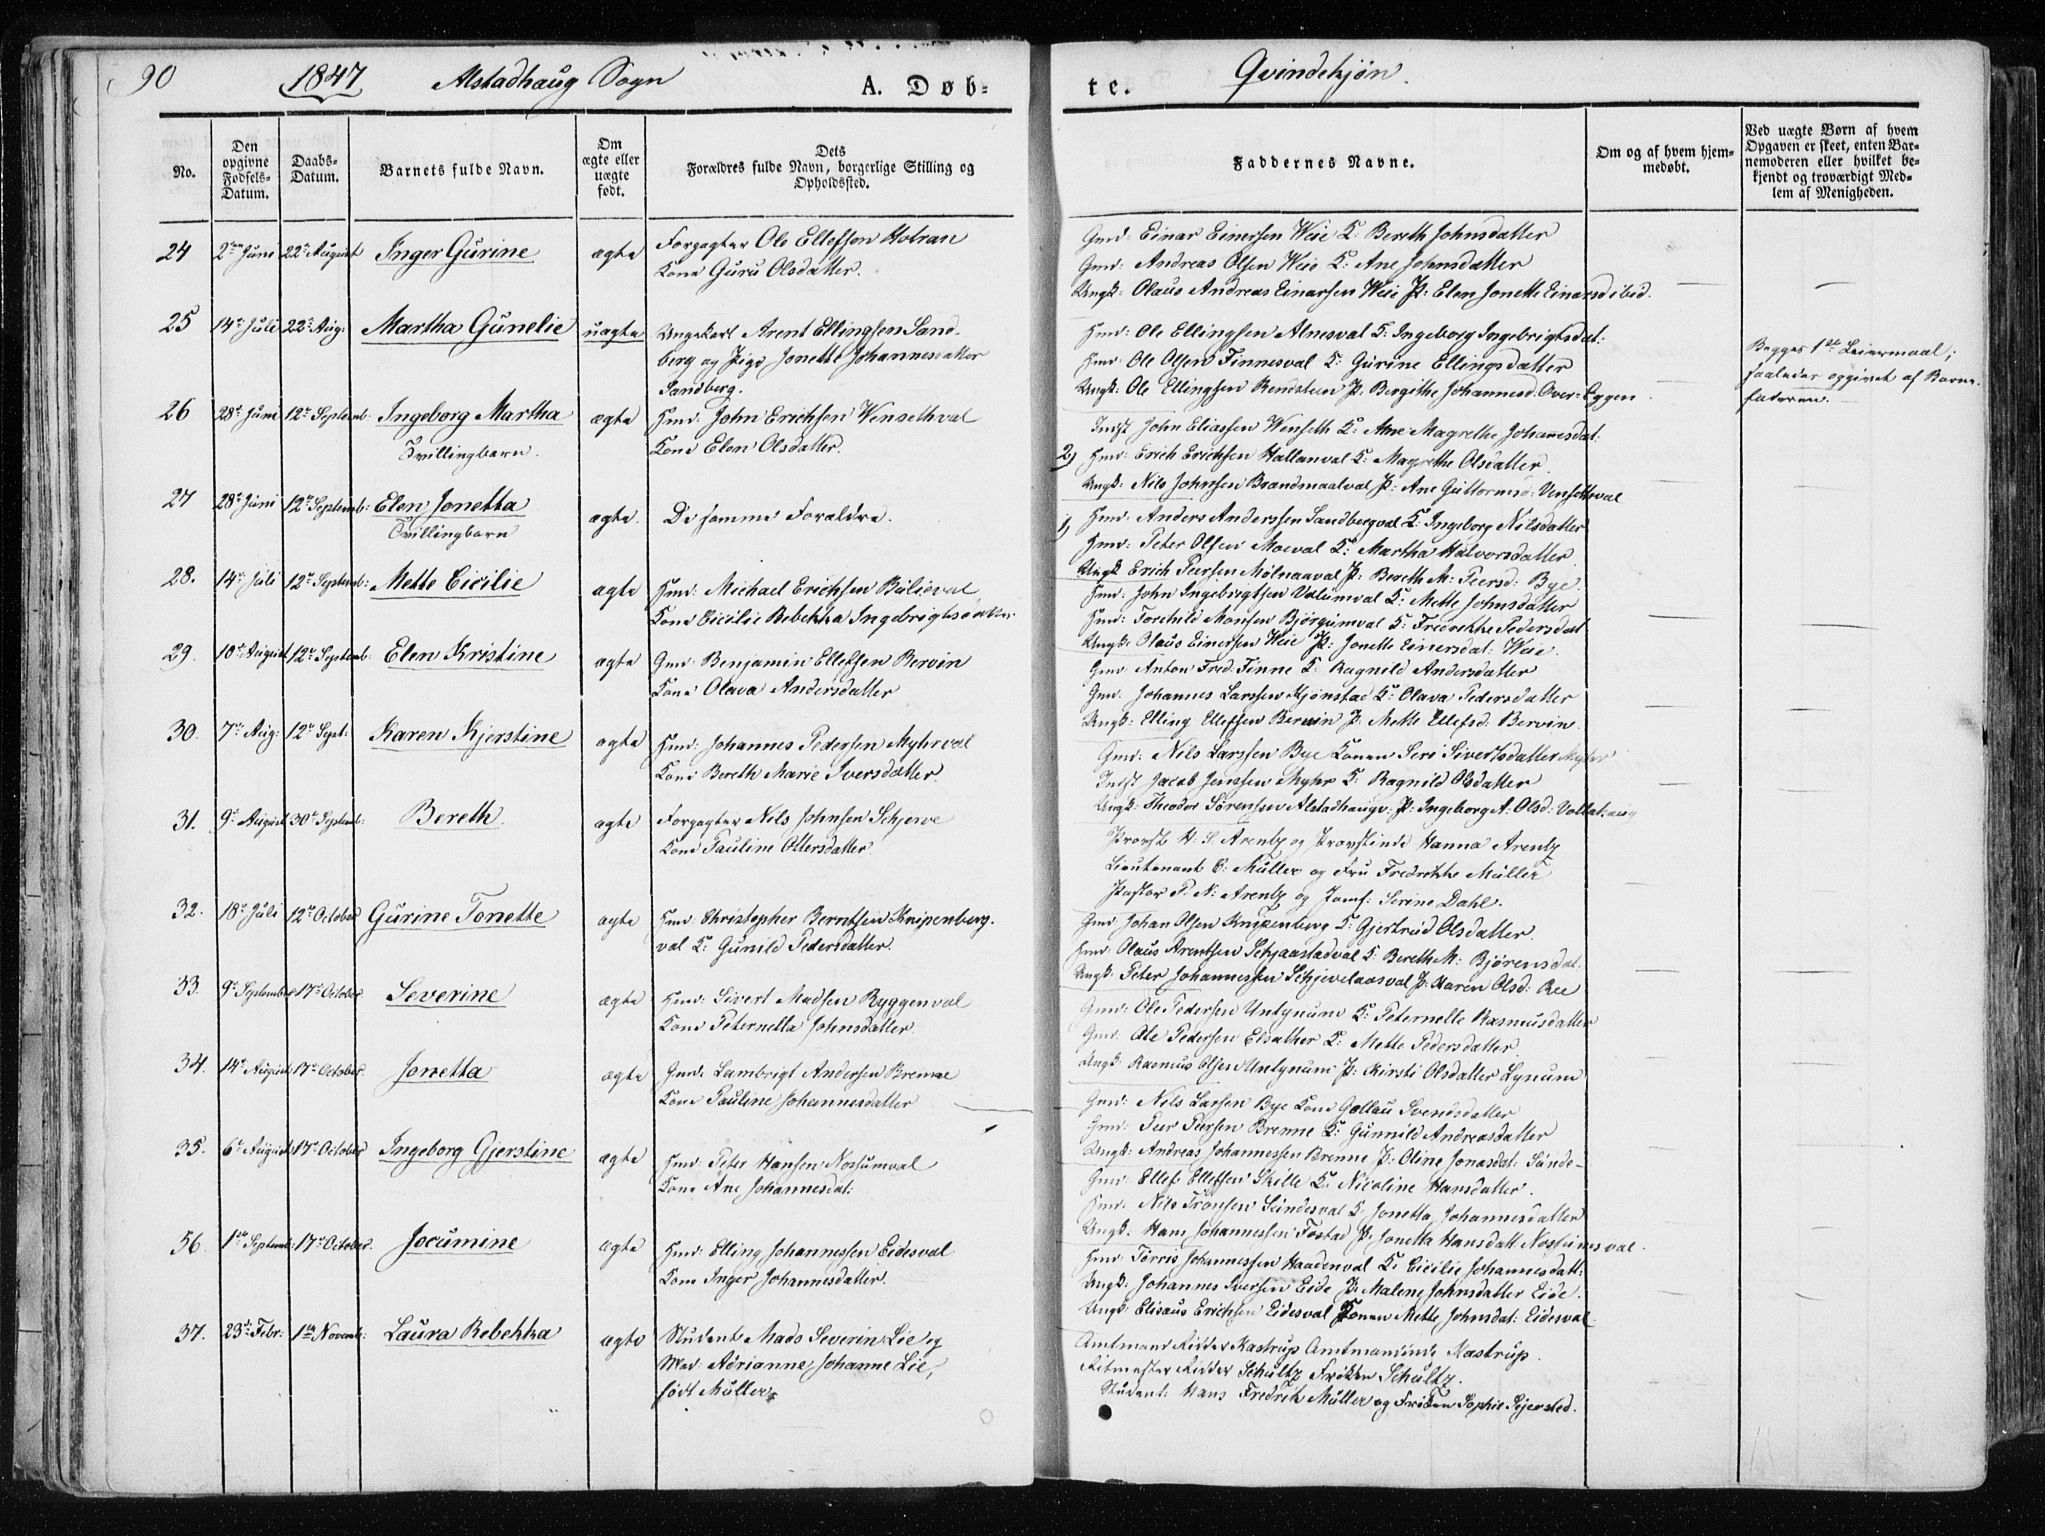 90 1847 Alstadhaug Sogn A. Døb-
te. Qvindekjøn.
No.
Den opgivne Fødsels-Datum.
Daabs-Datum.
Barnets fulde Navn.
Om ægte eller uægte født.
Dets Forældres fulde Navn, borgerlige Stilling og Opholdssted.
Faddernes Navne.
Om og af hvem hjemmedøbt.
Ved uægte Børn af hvem Opgaven er skeet, enten Barnemoderen eller hvilket bekjendt og troværdigt Medlem af Menigheden.
24 2den Juni 22de August Inger Gurine ægte Forpagter Ole Ellefsen Holran
Kone Guru Olsdatter.
Gmd: Einar Einersen Weie K: Bereth Johnsdatter
Gmd: Andreas Olsen Weie K: Ane Johnsdatter
Ungk: Olaus Andreas Einarsen Weie P: Elen Jonette Einarsd ibid.
25 14de Juli 22de Aug: Martha Gunelie uægte Ungekarl Arent Ellingsen Sand-
berg og Pige Jonette Johannesdatter
Sandberg.
Hmd: Ole Ellingsen Alnesval K: Ingeborg Ingebrigtsdat:
Hmd: Ole Olsen Finnesval K: Gurine Ellingsdatter
Ungk: Ole Ellingsen Rendsteen P: Bergithe Johannesd: Over-Eggen
Begges 1ste Leiermaal;
saaledes opgivet af Barne-
faderen.
26 28de Juni 12te Septemb: Ingeborg Martha ægte Hmd: John Erichsen Wensethval
Tvillingbarn.
Kone Elen Olsdatter.
Indst John Eliassen Wenseth K: Ane Magrethe Johanesdat:
2) Hmd: Erich Erichsen Hallanval K: Magrethe Olsdatter
Ungk: Nils Johnsen Brandmaalval P: Ane Guttormsd: Vensethval
27 28de Juni 12te Septemb: Elen Jonetta ægte. De samme Forældre.
Tvillingbarn
1) Hmd: Anders Anderssen Sandbergval K: Ingeborg Nilsdatter
Hmd: Peter Olsen Moeval K: Martha Halvorsdatter
Ungk Erich Peersen Mølnaaval P: Bereth M: Peersd: Bye.
28. 14de Juli 12te Septemb: Mette Cicilie ægte Hmd: Michael Erichsen Bulieval
Kone Cicilie Rebekka Ingebrigtsdatter
Hmd: John Ingebrigtsen Valumval K: Mette Johnsdatter
Hmd: Torchild Monsen Bjørgumval K: Fredrikke Pedersdat
Ungk: Olaus Einersen Weie P: Jonette Einersdat: Weie.
29. 10de August 12te Septemb: Elen Kristine ægte Gmd: Benjamin Ellefsen Bervin
Kone Olava Andersdatter
Gmd: Anton Fred: Finne K: Ragnild Andersdatter
Gmd. Johannes Larssen Kjønstad K: Olava Pedersdatter
Ungk: Elling Ellefsen Bervin P: Mette Ellefsd: Bervin.
30. 7de Aug: 12te Sept: Karen Kjerstine ægte Hmd: Johannes Pedersen Myhrval
Kone Bereth Marie Iversdatter.
Gmd: Nils Larssen Bye Konen Seri Sivertsdatter Myhr
Indst Jacob Jenssen Myhr K: Ragnild Olsdatter
Ungk: Theodor Sørenssen Alstadhaugv: P: Ingeborg A: Olsd: Vollahaug
31. 9de August 30te Septemb: Bereth. ægte Forpagter Nils Johnsen Schjerve
Kone Pauline Ottersdatter
Provst H. S. Arentz og Provstinde Hanna Arentz
Lieutenant C. Müller og Fru Fredrikke Müller
Pastor P. N: Arentz og Jomf: Serine Dahl.
32. 18de Juli 12te October Gurine Tonette ægte Hmd: Christopher Berntsen Knipenberg-
val K: Gunild Pedersdatter.
Gmd Johan Olsen Knipenberg K: Gjertrud Olsdatter.
Hmd: Olaus Arentsen Schjaastadval K: Bereth M: Bjørensdat.
Ungk: Peter Johannessen Schjevelaasval P: Karen Olsd: Ree
33. 9de September 17de October Severine ægte Hmd: Sivert Madsen Ryggenval
Kone Peternella Johnsdatter
Gmd: Ole Pedersen Untynum K: Peternelle Rasmusdatter
Gmd. Ole Pedersen Elsather K: Mette Pedersdatter
Ungk: Rasmus Olsen Untynum P: Kirsti Olsdatter Lynum
34. 14de August 17de October Jonetta ægte Gmd: Lambrigt Andersen Brenne
Kone Pauline Johannesdatter
Gmd: Nils Larsen Bye Kone Gollau Svendsdatter
Hmd: Peer Peersen Brenne K: Gunnild Andreasdatter
Ungk: Andreas Johannessen Brenne P: Oline Jonasdat: Sunde-
35. 6te August 17de October Ingeborg Gjerstine ægte Hmd: Peter Hansen Nossumval
Kone Ane Johannesdat:
Gmd: Ellef Ellefsen Skille K: Nicoline Hansdatter.
Hmd. Nils Tronsen Sundesval K. Jonetta Johannesdatter
Ungk: Hans Johannessen Fostad P: Jonetta Hansdatt: Nossumsval.
36 1ste Septemb: 17de October. Jocumine ægte Hmd: Elling Johannessen Eidesval
Kone Inger Johannesdatter.
Hmd: Torris Johannessen Haadenval K: Cicilie Johannesdatt:
Ungk: Johannes Iversen Eide P: Malene Johnsdatter Eide.
Ungk: Elisæus Erichsen Eidesval Konen Mette Johnsdat: Eidesval.
37. 23de Febr: 1ste Novemb: Laura Rebekka ægte Student Mads Severin Lie og
Mad: Adrianne Johanne Lie,
født Müller
Amtmand Ridder Kastrup Amtmandinde Kastrup.
Ritmester Ridder Schultz Frøken Schultz.
Student: Hans Fredrik Müller og Frøken Sophie Sejersted.